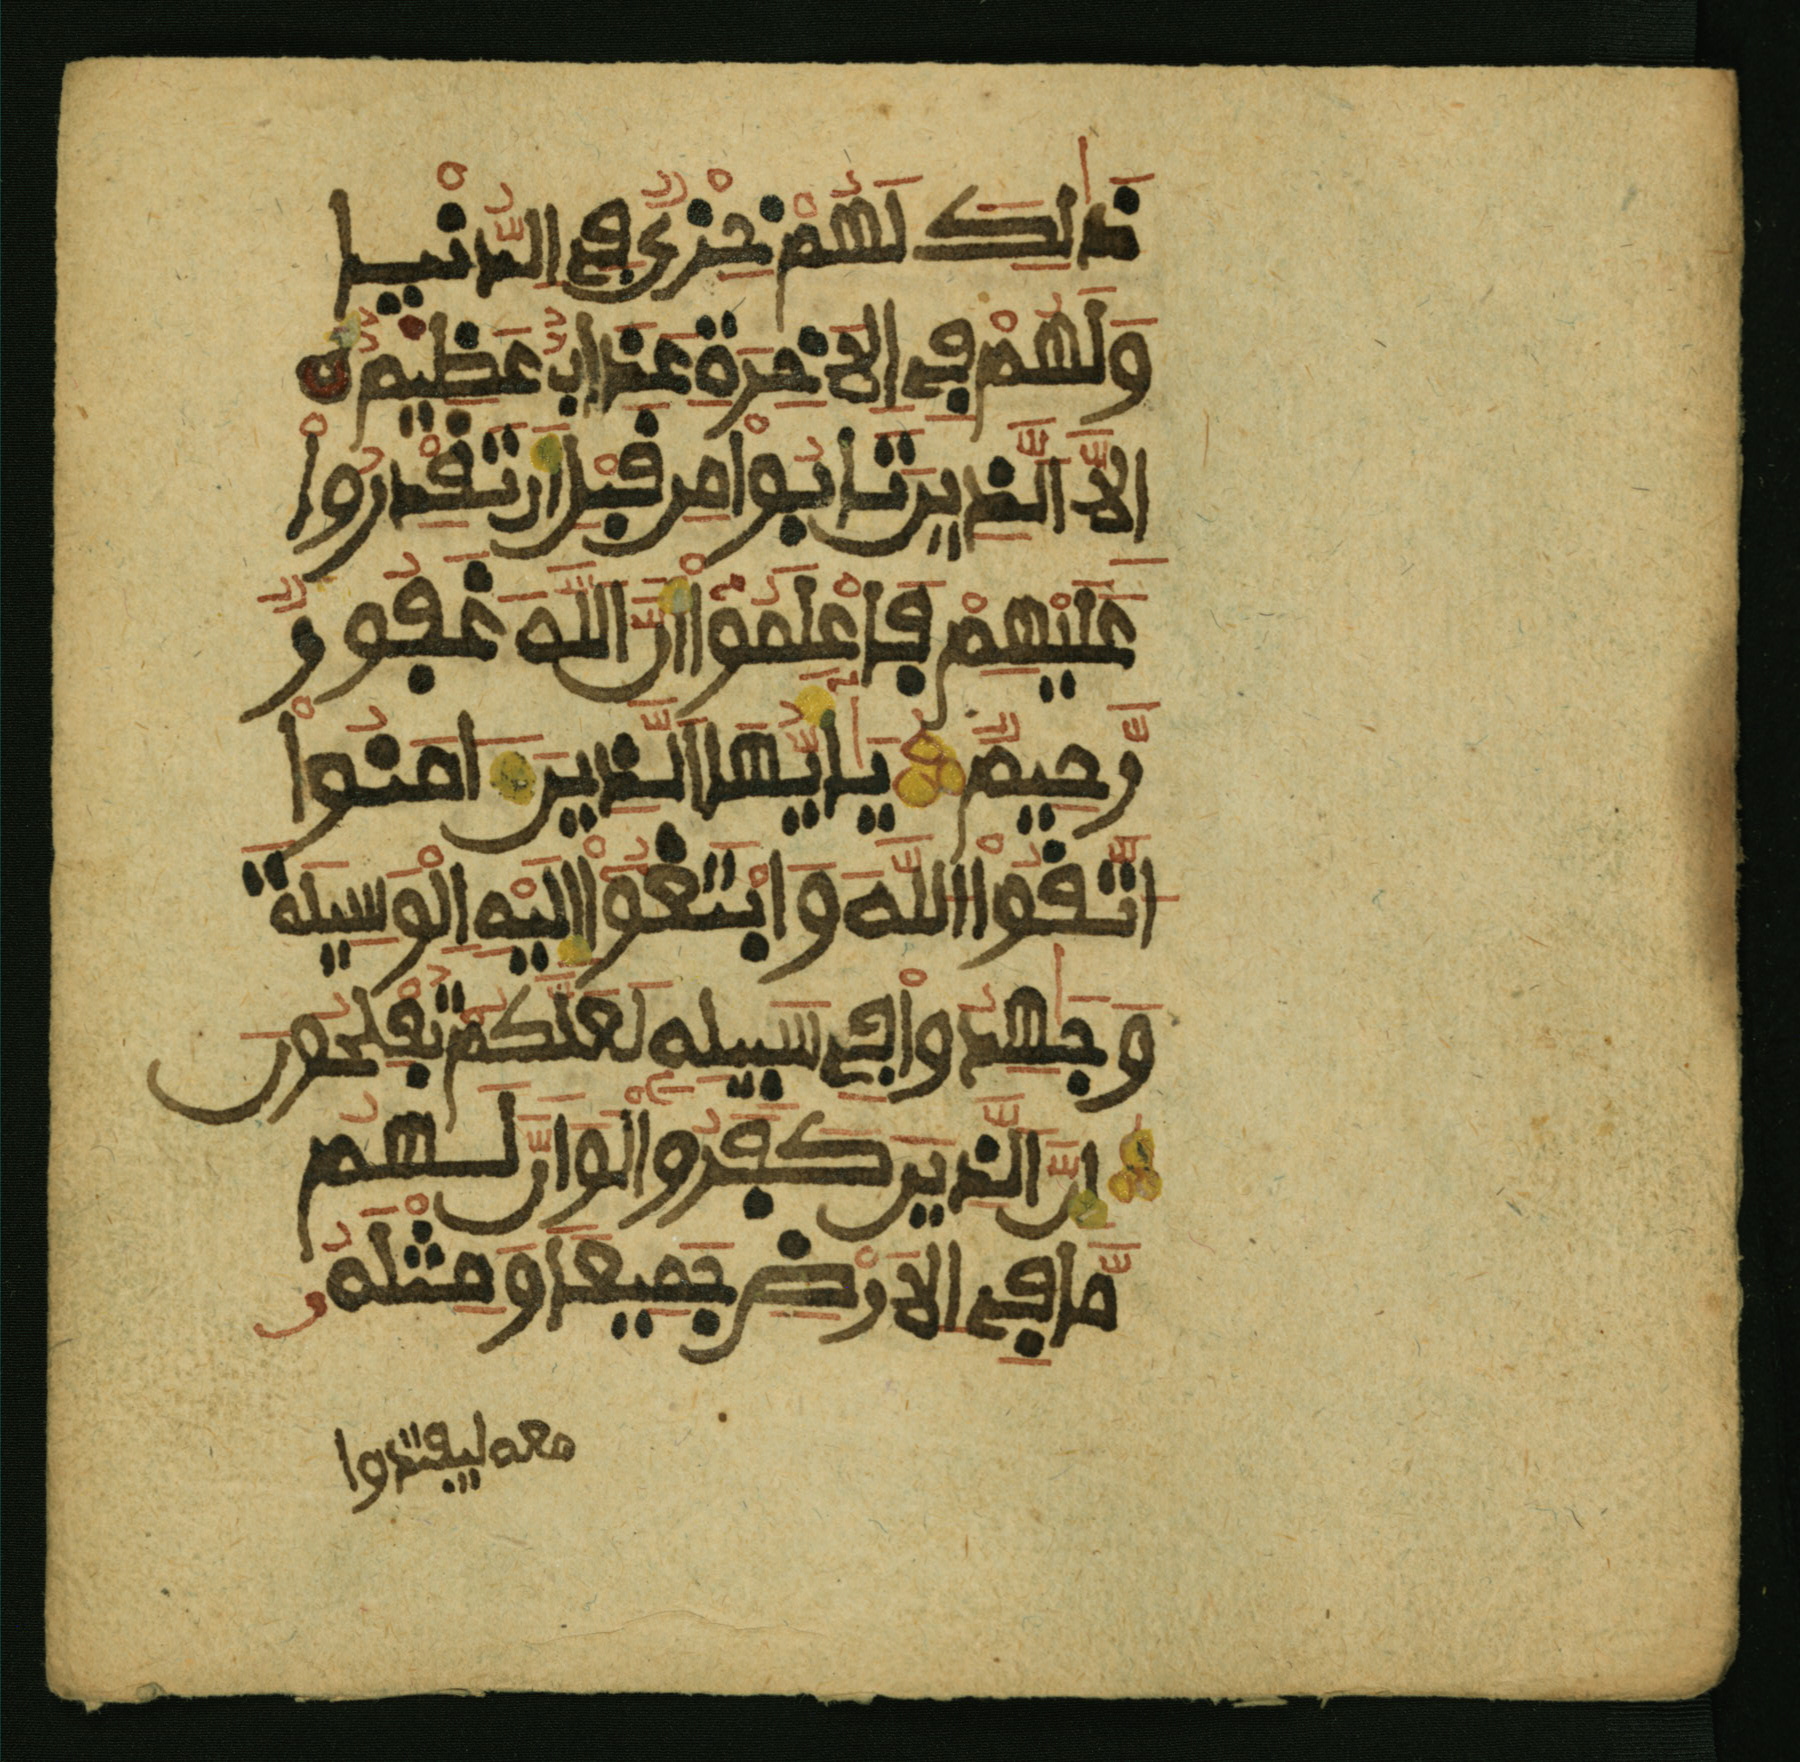 ذَٰلِكَ لَهُمْ خِزْيٌ فِي الدُّنْيَا
وَلَهُمْ فِي الَاخِرَةِ عَذَابٌ عَظِيمٌ
اِلَّا الَّذِينَ تَابُوا مِن قَبْلِ أَن تَقْدِرُواْ
عَلَيْهِمْ فَاعْلَمُواْ أَنَّ اللَّهَ غَفُورٌ
رَّحِيمٌ يَٰأَيُّهَا الَّذِينَ ءَامَنُواْ
اتَّقُواْ اللَّهَ وَابْتَغُواْ إِلَيْهِ الْوَسِيلَةَ
وَجَٰهِدُواْ فِي سَبِيلِهِ لَعَلَّكُمْ تُفْلِحُونَ
إِنَّ الَّذِينَ كَفَرُواْ لَوَ اَنَّ لَهُم
مَّا فِي الَارْضِ جَمِيعاً وَمِثْلَهُ
معه ليفتدوا